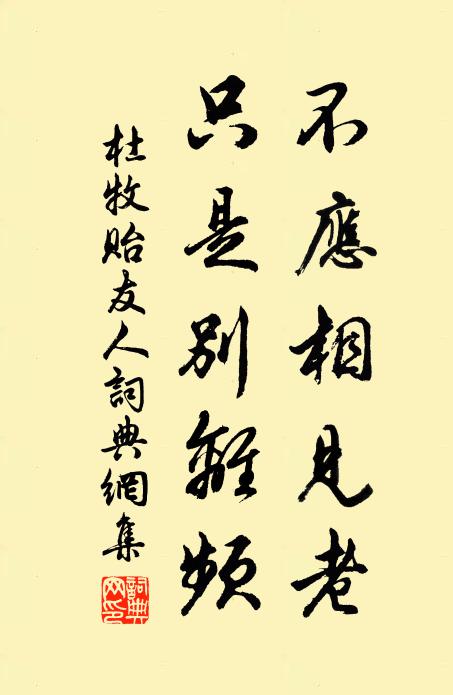 不應相見老
只是別離頻
杜牧貽友人詞典網集
詞典網印